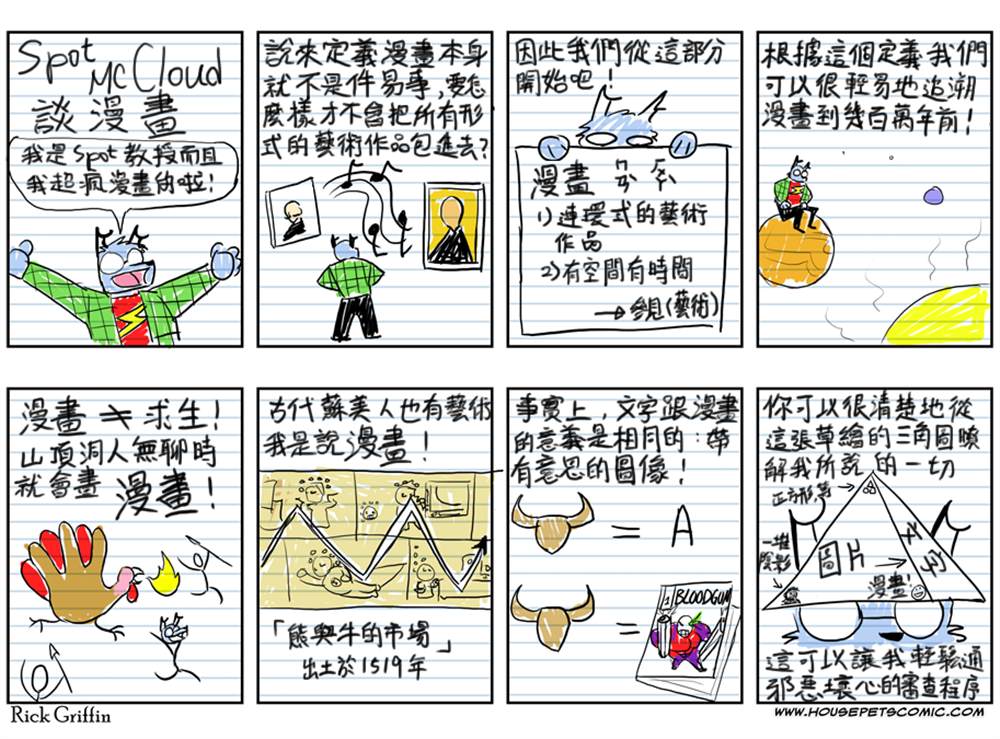 Spot
McCloud
談漫畫
我是Spot教授而且
我超瘋漫畫的啦!
說來定義漫畫本身
就不是件易事,要怎
麼樣才不會把所有形
式的藝術作品包進去?
因此我們從這部分
開始吧!
漫畫 ㄇㄢˋ ㄏㄨㄚˋ
1)連環式的藝術
作品
2)有空間有時間
→參見(藝術)
根據這個定義我們
可以很輕易地追溯
漫畫到幾百萬年前!
漫畫≠求生!
山頂洞人無聊時
就會畫 漫畫!
古代蘇美人也有藝術
我是說漫畫!
「熊與牛的市場」
出土於1519年
事實上,文字跟漫畫
的意義是相同的:帶
有意思的圖像!
= A
=
1 BLOODGUM
你可以很清楚地從
這張草繪的三角圖瞭
解我所說的一切
正方形,等
一堆
陰影
圖片
→
文字
漫畫!
這可以讓我輕鬆通
邪惡壞心的審查程序
Rick Griffin
WWW.HOUSEPETSCOMIC.COM